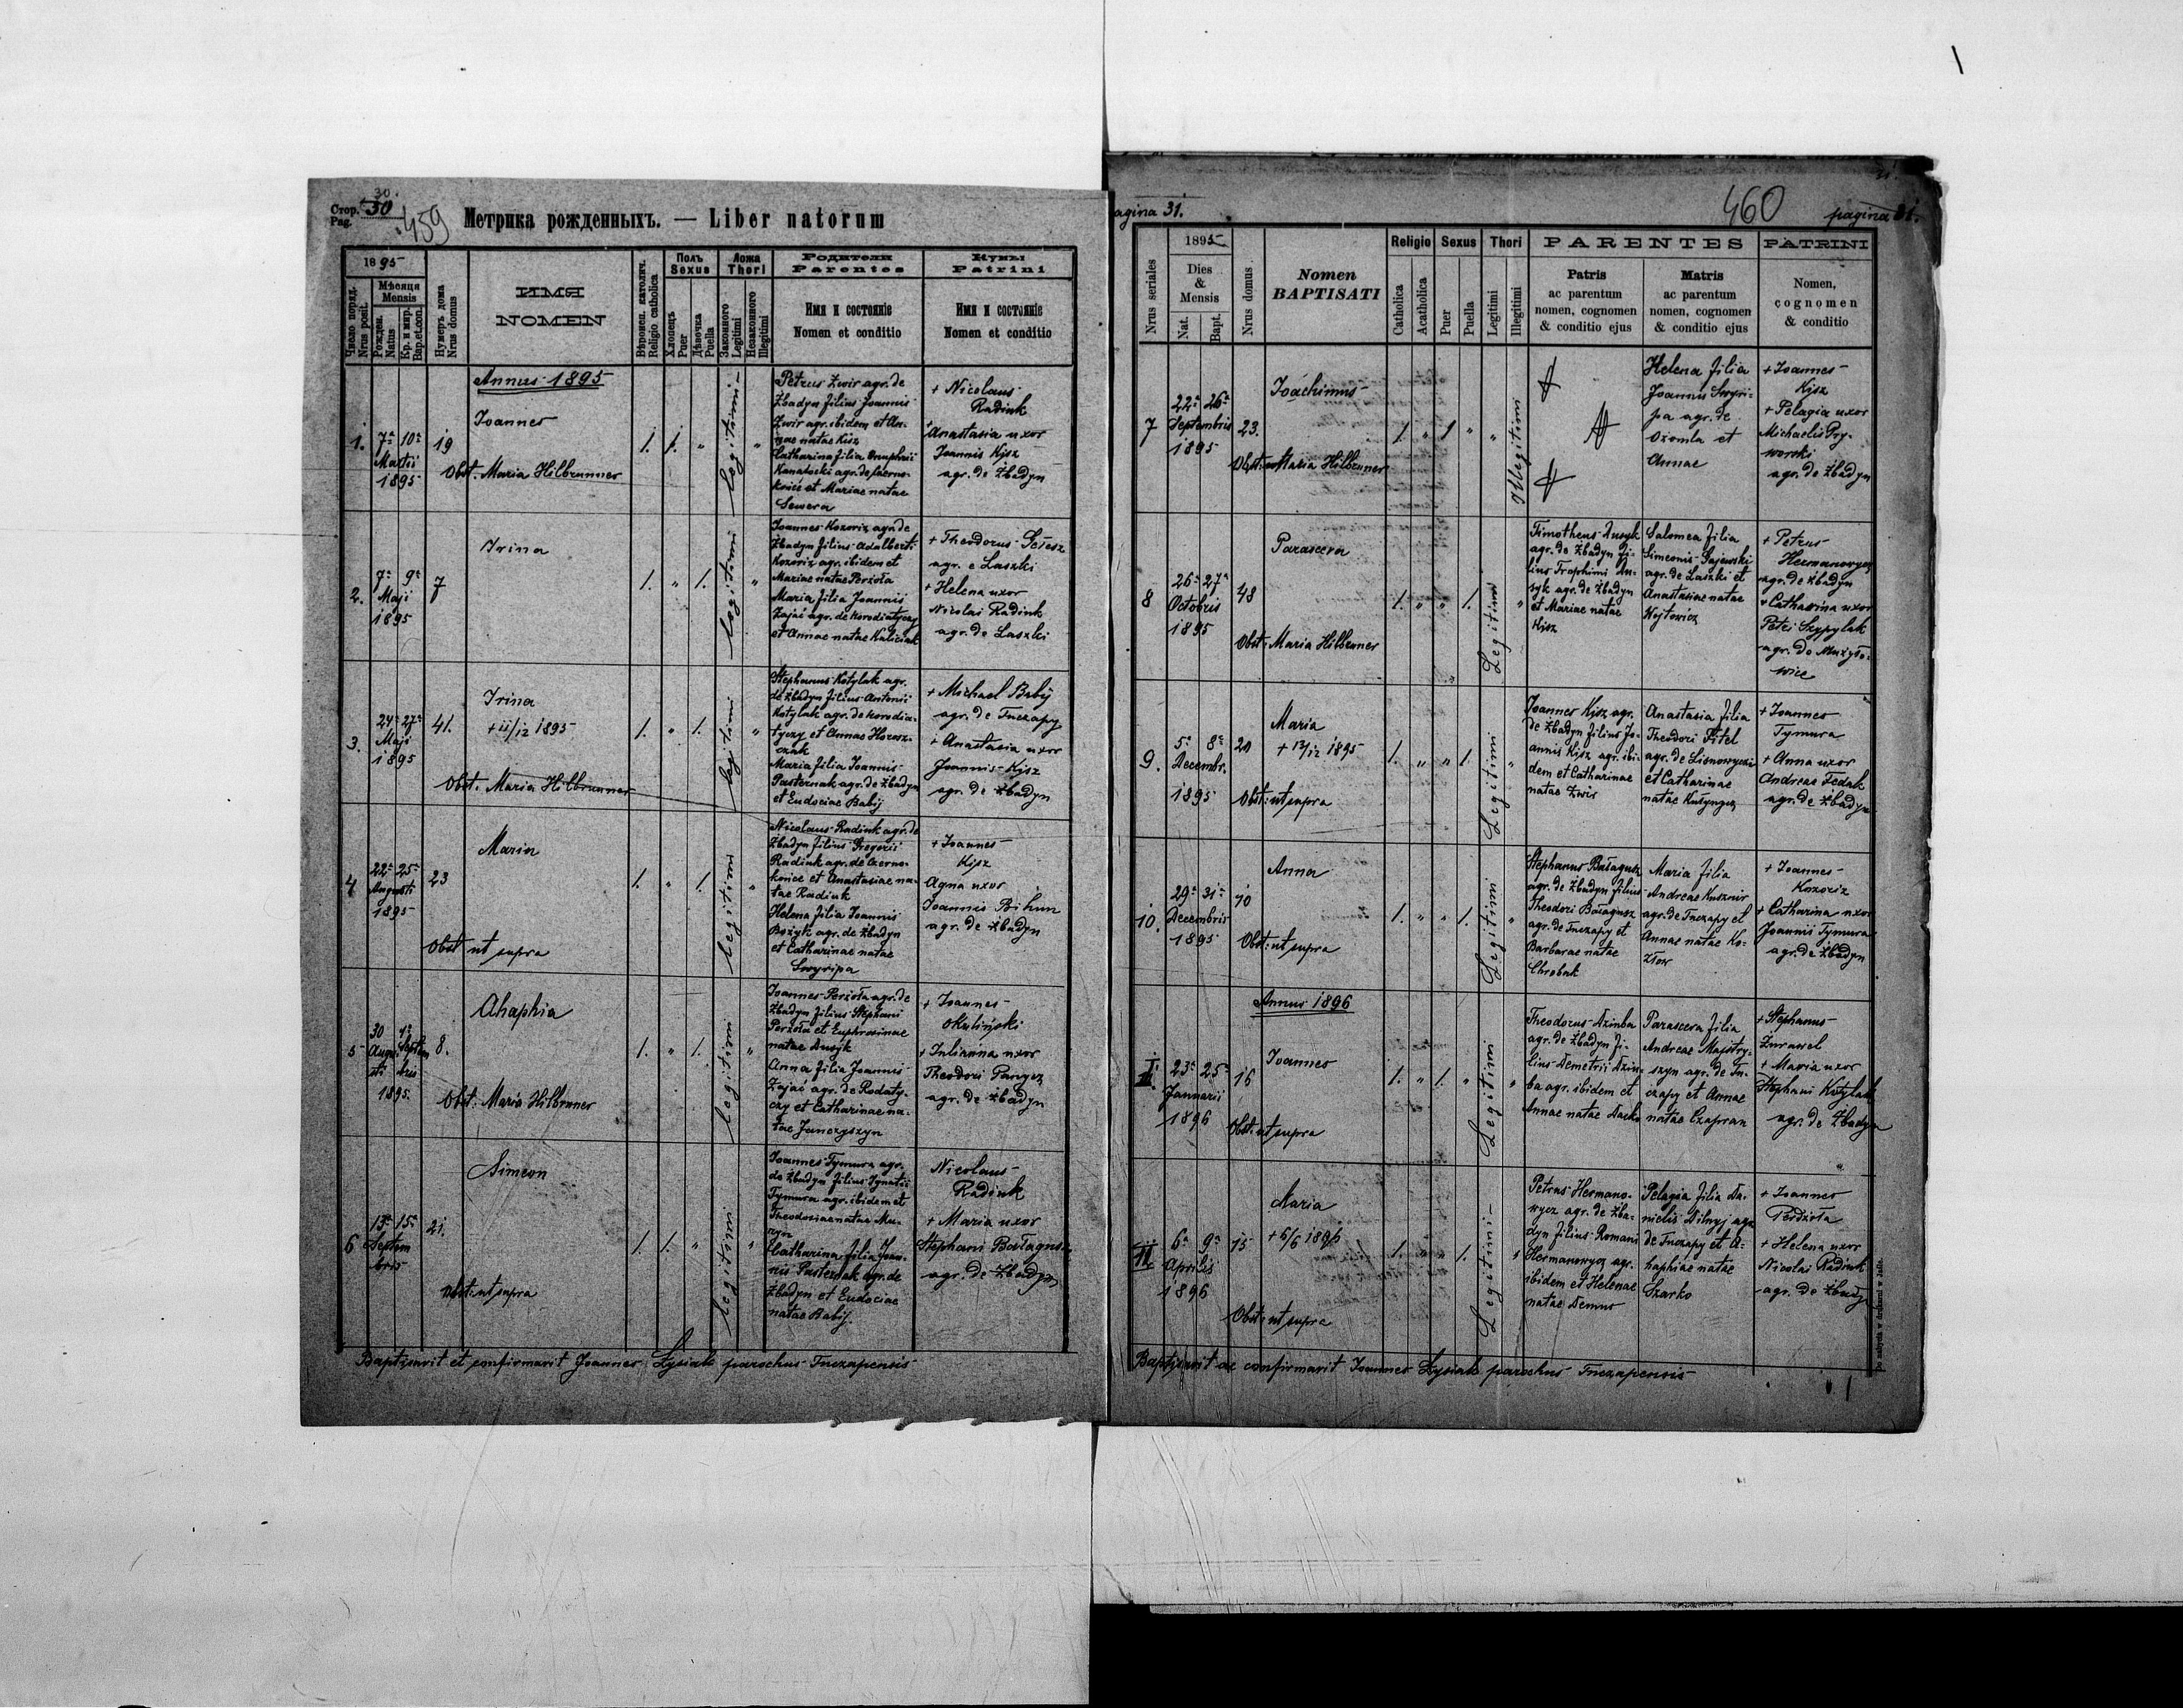 Стор. 30
Pag. 30.
459
Метрика рожденныхъ. — Liber natorum
1895
Число поряд.
Nrus posit.
Мѣсяця
Mensis
Рожден.
Natus
Кр. и мир.
Bap. et con.
Нумеръ дома
Nrus domus
ИМЯ
NOMEN
Вѣроисп. католич.
Religio catholica
Полъ
Sexus
Хлопець
Puer
Дѣвочка
Puella
Ложа
Thori
Законного
Legitimi
Незаконного
Illegitimi
Родители
Parentes
Имя и состояніе
Nomen et conditio
Кумы
Patrini
Имя и состояніе
Nomen et conditio
Annus 1895
1.
7ª 10ª
Martii
1895
19
Joannes
Obst. Maria Hilbrunner
1. 1. "
legitimi
"
Petrus Żwir agr. de
Żbadyn filius Joannis
Żwir agr. ibidem et An-
nae natae Kisz
Catharina filia Onuphrii
agr. de
et Mariae natae
Sewera
+ Nicolaus
Radiuk
+ Anastasia uxor
Joannis Kisz
agr. de Żbadyn
2.
7ª 9ª
Maji
1895
7
Irina
1. " 1.
legitimi
"
Joannes Kozoriz agr. de
Żbadyn filius Adalberti
Kozoriz agr. ibidem et
Mariae natae Perżoła
Maria filia Joannis
Zając agr. de Korodiatyczy
et Annae natae
+ Theodorus
agr. e Laszki
+ Helena uxor
Nicolai Radiuk
agr. de Laszki
3.
24ª 27ª
Maji
1895
41.
Irina
+ 11/12 1895
Obst. Maria Hilbrunner
1. " 1.
legitimi
"
Stephanus Kotylak agr.
de Żbadyn filius Antonii
Kotylak agr. de Korodia-
tyczy et Annae Horosz-
czak
Maria filia Joannis
Pasternak agr. de Żbadyn
et Eudociae Babij
+ Michael Babij
agr. de Tuczapy
+ Anastasia uxor
Joannis Kisz
agr. de Żbadyn
4
22ª 25ª
Augusti
1895
23
Maria
Obst ut supra
1. " 1.
legitimi
"
Nicolaus Radiuk agr. de
Żbadyn filius Gregorii
Radiuk agr. de Czerno-
końce et Anastasiae na-
tae Radiuk
Helena filia Joannis
Bozyk agr. de Żbadyn
et Catharinae natae
Swyripa
+ Joannes
Kisz
Agna uxor
Joannis Bihun
agr. de Żbadyn
5
30 1ª
Augu- Septem
sti bris
1895.
8.
Ahaphia
Obst. Maria Hilbruner
1. " 1.
legitimi
"
Joannes Perżoła agr. de
Żbadyn filius Stephani
Perżoła et Euphrosinae
natae Dusyk
Anna filia Joannis
Zając agr. de Rodaty-
czy et Catharinae na-
tae Janczyszyn
+ Joannes
Okuliński
+ Julianna uxor
Theodori Panycz
agr. de Żbadyn
6
13ª 15ª
Septem
bris
21.
Simeon
Obst: ut supra
1. 1. "
legitimi
"
Joannes Tymura agr.
de Żbadyn filius Ignatii
Tymura agr. ibidem et
Theodosiae natae Mu-
Catharina filia Joan-
nis Pasternak agr. de
Żbadyn et Eudociae
natae Babij.
Nicolaus
Radiuk
+ Maria uxor
Stephani Bałagusz
agr. de Żbadyn
Baptizavit et confirmavit Joannes Łysiak parochus Tuczapensis
agina 31.
460
pagina 31.
Nrus seriales
1895
Dies
&
Mensis
Nat.
Bapt.
Nrus domus
Nomen
BAPTISATI
Religio
Catholica
Acatholica
Sexus
Puer
Puella
Thori
Legitimi
Illegitimi
PARENTES
Patris
ac parentum
nomen, cognomen
& conditio ejus
Matris
ac parentum
nomen, cognomen
& conditio ejus
PATRINI
Nomen,
cognomen
& conditio
7
22ª 26ª
Septembris
1895
23.
Joáchimus
Obst: Maria Hilbruner
1. " 1 " "
Illegitimi
Helena filia
Joannis Swyri-
pa agr. de
Ożomla et
Annae
+ Joannes
Kisz
+ Pelagia uxor
Michaelis Pry-
worski
agr. de Żbadyn
8
26ª 27ª
Octobris
1895
48
Parascera
Obst: Maria Hilbruner
1. " " 1.
Legitimi
"
Timotheus Dusyk
agr. de Żbadyn fi-
lius Trophimi Du-
syk agr. de Żbadyn
et Mariae natae
Kisz
Salomea filia
Simeonis Gajewski
agr. de Laszki et
Anastasiae natae
Wojtowicz
+ Petrus
Hermanowycz
agr. de Żbadyn
+ Catharina uxor
Petri Szypylak
agr. de Mużyło-
wice
9.
5ª 8ª
Decembr.
1895
20
Maria
+ 17/12 1895
Obst: ut supra
1. " " 1.
Legitimi
"
Joannes Kisz agr.
de Żbadyn filius Jo-
annis Kisz agr. ibi-
dem et Catharinae
natae Żwir
Anastasia filia
Theodori Fitel
agr. de
et Catharinae
natae
+ Joannes
Tymura
+ Anna uxor
Andreae Fedak
agr. de Żbadyn
10.
29ª 31ª
Decembris
1895
10
Anna
Obst: ut supra
1. " " 1.
Legitimi
"
Stephanus Bałagusz
agr. de Żbadyn filius
Theodori Bałagusz
agr. de Tuczapy et
Barbarae natae
Chrobak
Maria filia
Andreae Kusznir
agr. de Tuczapy et
Annae natae Ko-
złow
+ Joannes
Kozoriz
+ Catharina uxor
Joannis Tymura
agr. de Żbadyn
Annus 1896
I.
23ª 25ª
Januarii
1896
16
Joannes
Obst: ut supra
1. " 1. "
Legitimi
"
Theodorus Dziuba
agr. de Żbadyn fi-
lius Demetrii Dziu-
ba agr. ibidem et
Annae natae Dacko
Parascera filia
Andreae Majstry-
szyn agr. de Tu-
czapy et Annae
natae Czapran
+ Stephanus
Żurawel
+ Maria uxor
Stephani Kotylak
agr. de Żbadyn
II
6ª 9ª
Aprilis
1896
15
Maria
+ 6/6 1896
Obst: ut supra
1. " " 1.
Legitimi
Petrus Hermano-
wycz agr. de Żba-
dyn filius Romani
Hermanowycz agr.
ibidem et Helenae
natae Demus
Pelagia filia Da-
nielis Dilnyj agr.
de Tuczapy et A-
haphiae natae
Szarko
+ Joannes
+ Helena uxor
Nicolai Radiuk
agr. de Żbadyn
Baptizavit ac confirmavit Joannes Łysiak parochus Tuczapensis
Do nabycia w drukarni w Jaśle.